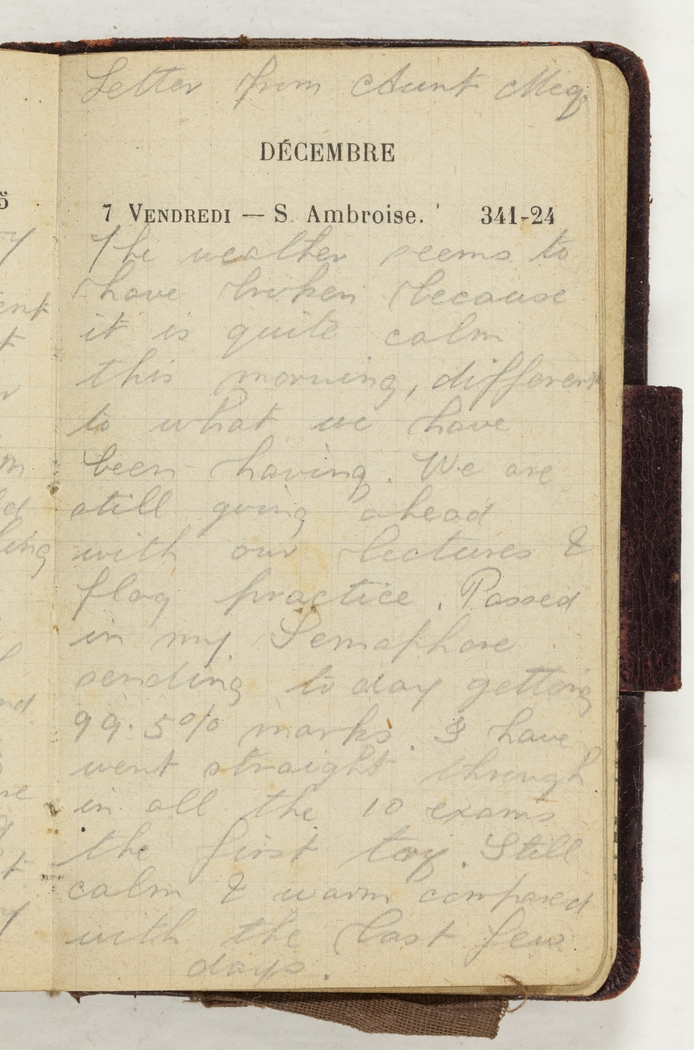 Letter from Aunt Meg.
DÉCEMBRE
7 VENDREDI — S. Ambroise. 341-24
The weather seems to
have broken because
it is quite calm
this morning, different
to what we have
been having. We are
still going ahead
with our lectures &
flag practice. Passed
in my Semaphore
sending to day getting
99.5% marks. I have
went straight through
in all the 10 exams
the first try. Still
calm & warm compared
with the last few
days.